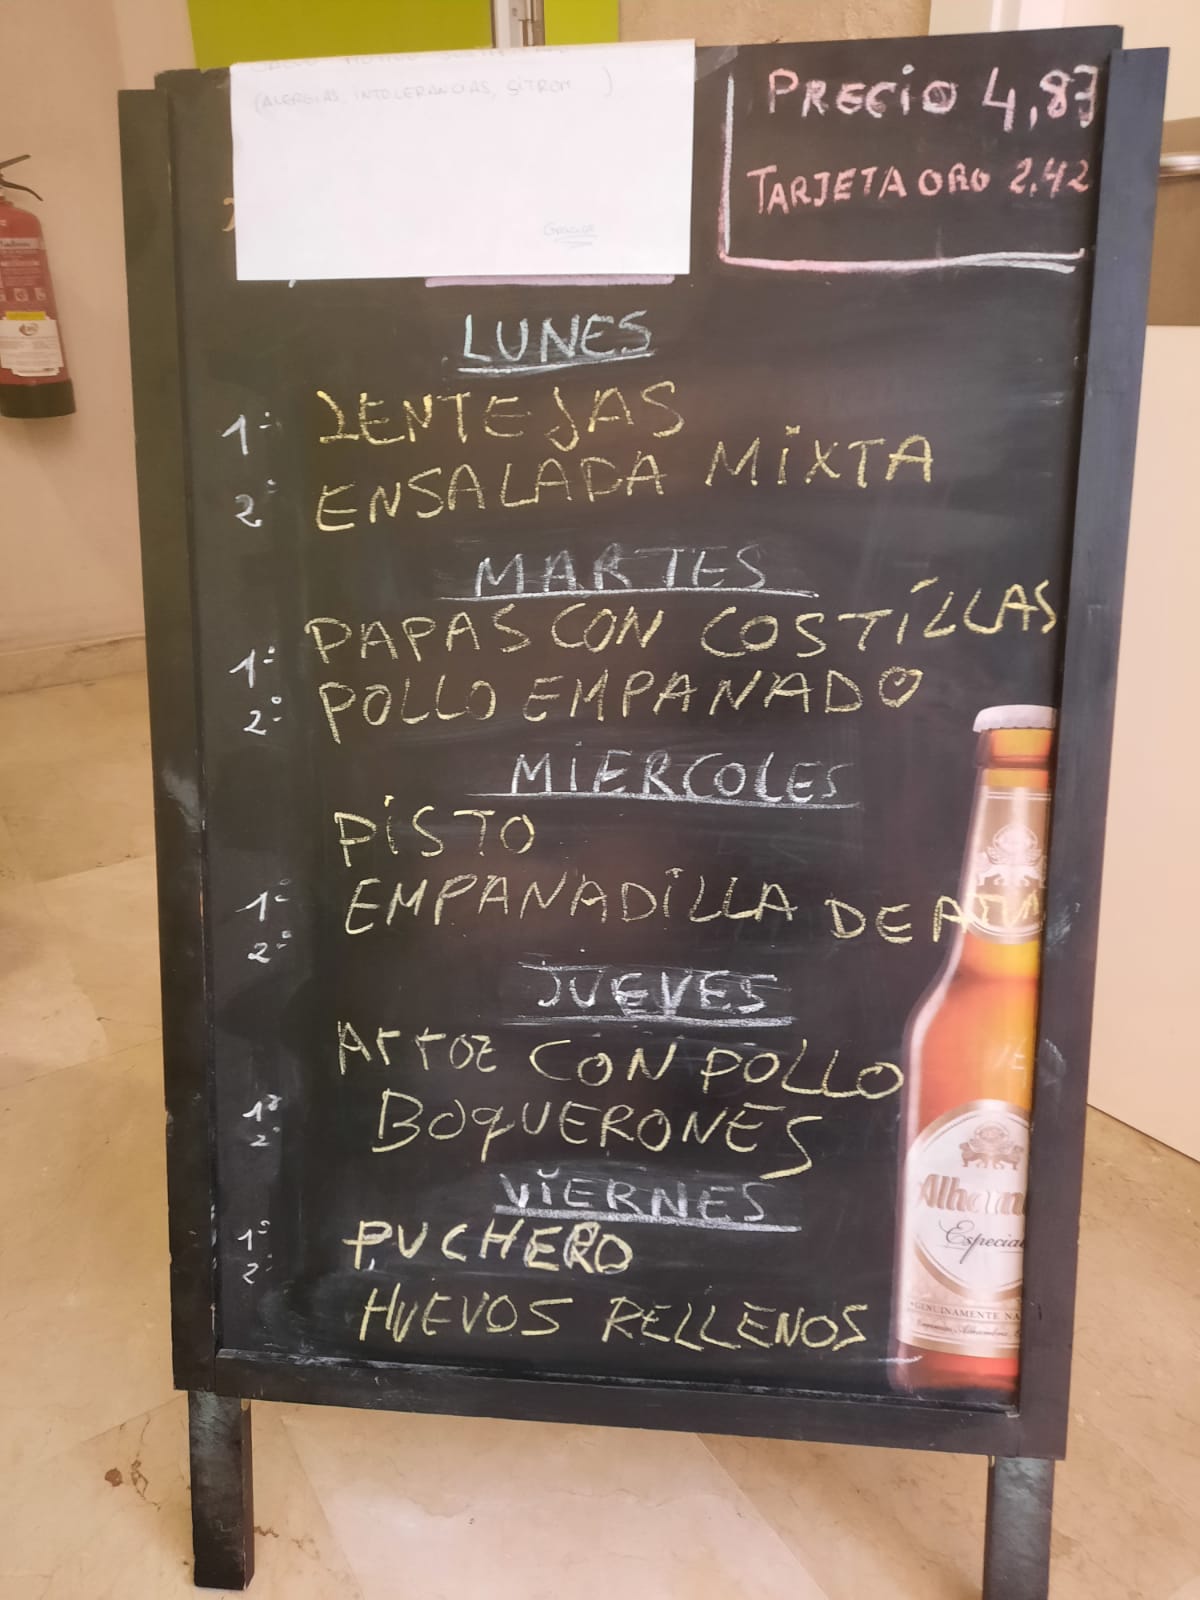 (ALERGIAS, INTOLERANCIAS, SITROM )
Gracias
PRECIO 4,83
TARJETA ORO 2,42
LUNES
1º LENTEJAS
2º ENSALADA MIXTA
MARTES
1º PAPAS CON COSTILLAS
2º POLLO EMPANADO
MIERCOLES
PISTO
1º EMPANADILLA DE ATUN
2º
JUEVES
Arroz CON POLLO
1º BOQUERONES
2º
VIERNES
1º PUCHERO
2º
HUEVOS RELLENOS
Especial
GENUINAMENTE NA